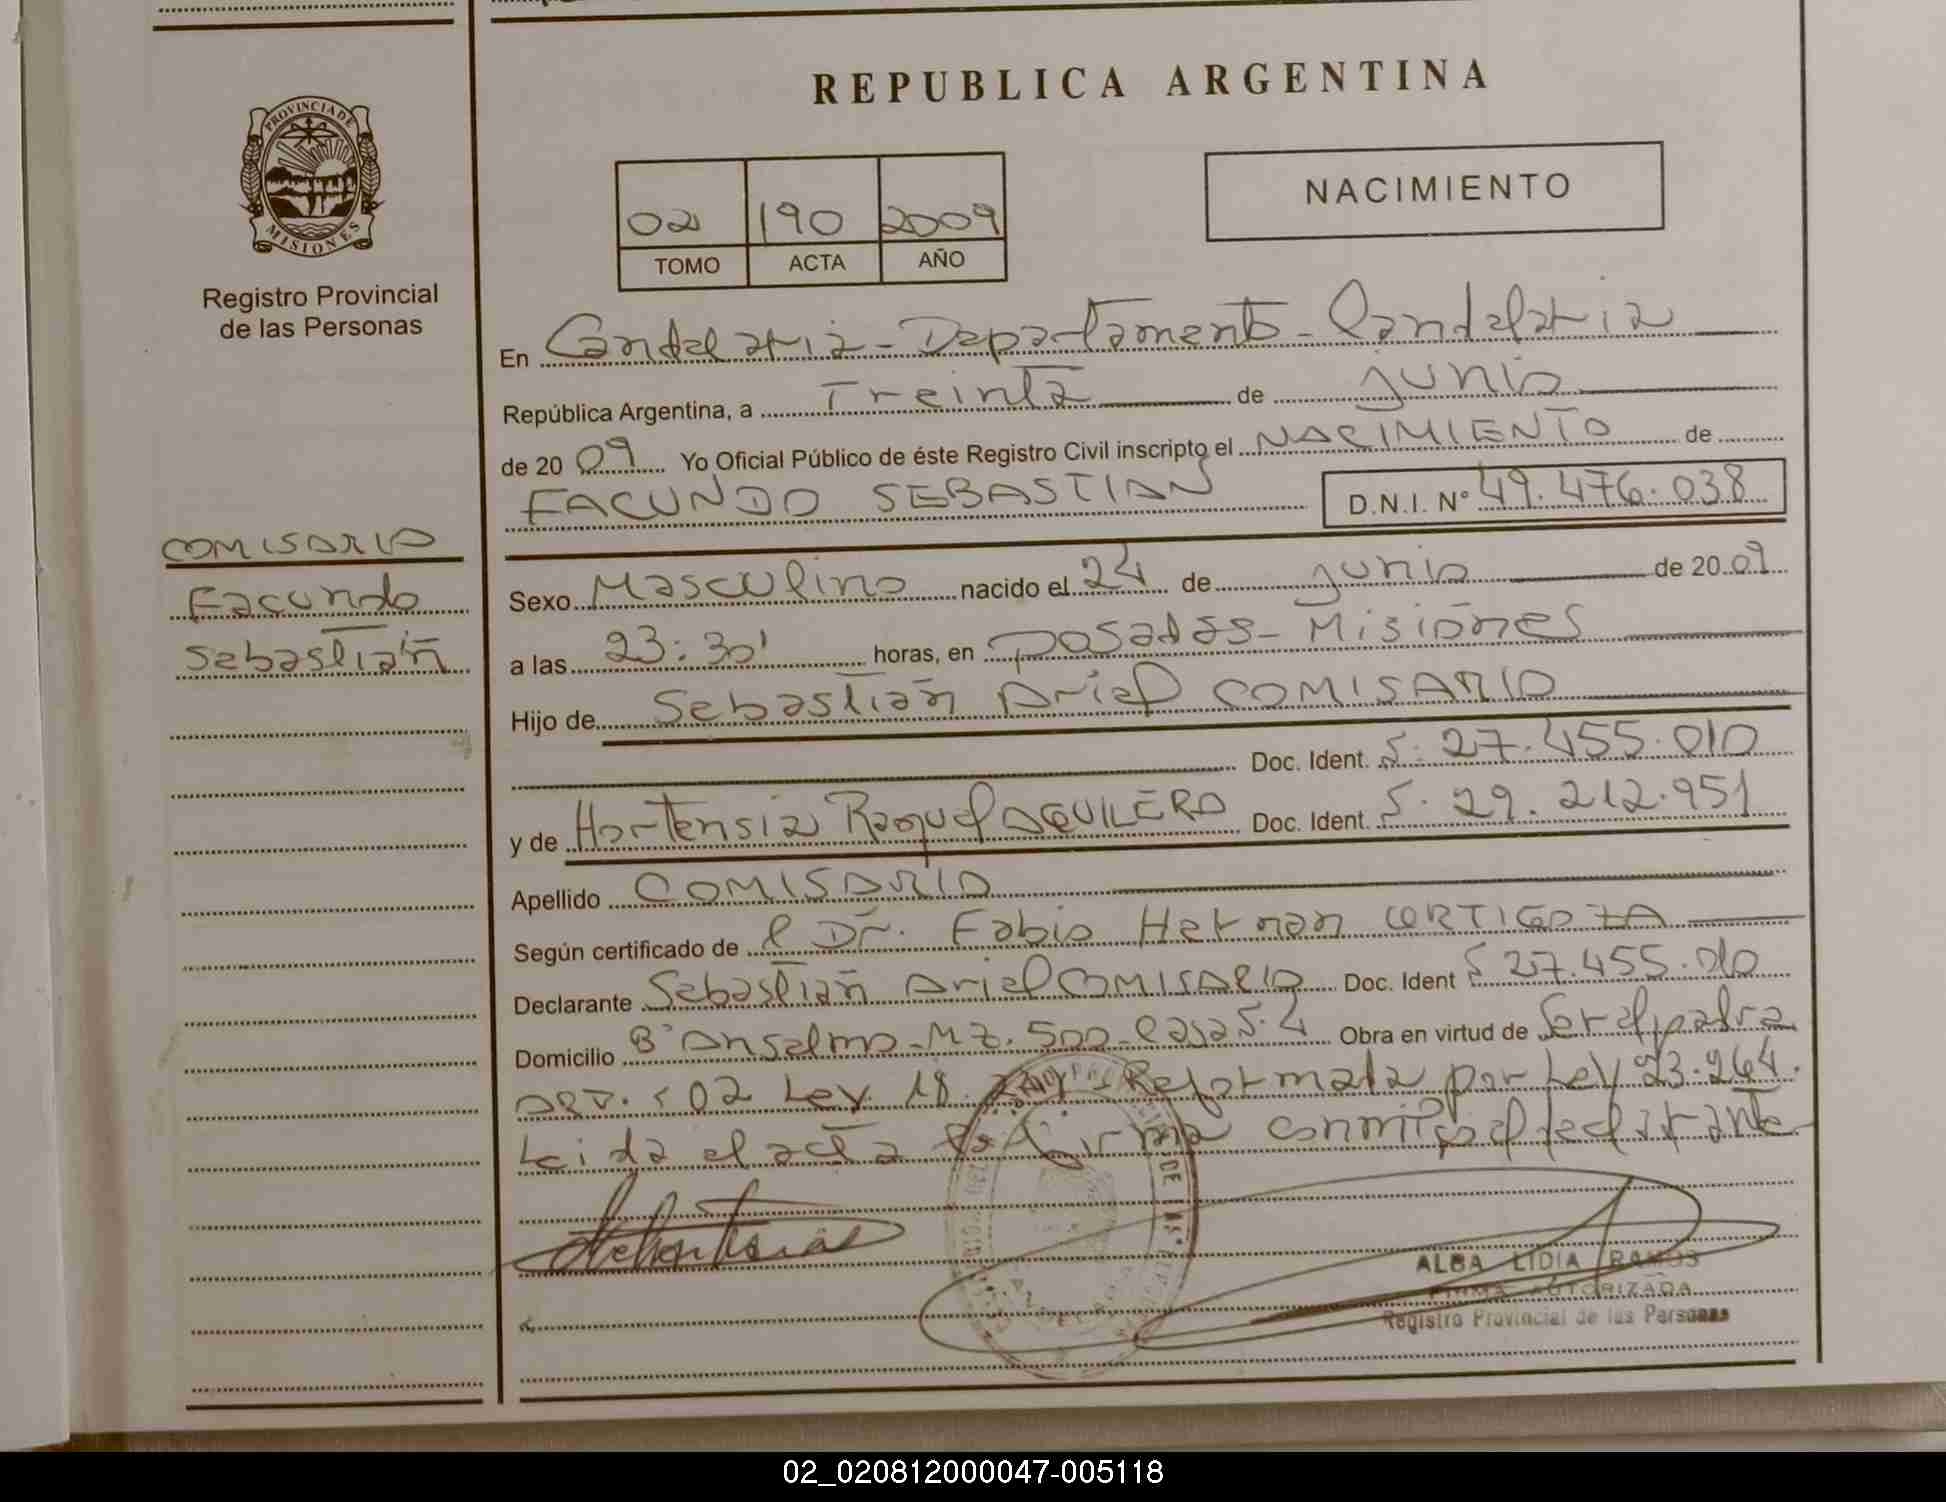 REPUBLICA ARGENTINA
PROVINCIA DE
MISIONES
Registro Provincial
de las Personas
02 190 2009
TOMO ACTA AÑO
NACIMIENTO
En Candelaria - Departamento - Candelaria
República Argentina, a Treinta de junio
de 20 09 Yo Oficial Público de éste Registro Civil inscripto el NACIMIENTO de
FACUNDO SEBASTIAN D.N.I. N° 49.476.038
COMISARIO
Facundo
Sebastián
Sexo Masculino nacido el 24 de junio de 20 09
a las 23:30' horas, en Posadas - Misiones
Hijo de Sebastián Ariel COMISARIO
Doc. Ident. 27.455.010
y de Hortensia Raquel AGUILERA Doc. Ident. 29.212.951
Apellido COMISARIO
Según certificado de l Dr. Fabio Hernan CORTIGOZA
Declarante Sebastián Ariel COMISARIO Doc. Ident 27.455.010
Domicilio B° Anselmo - MZ. 500 - Casa Obra en virtud de Ser el padre
Ley 18. Reformada por Ley 23.264.
Leida el acta la firma conmigo el declarante
ALBA LIDIA RAMOS
FIRMA AUTORIZADA
Registro Provincial de las Personas
02_020812000047-005118